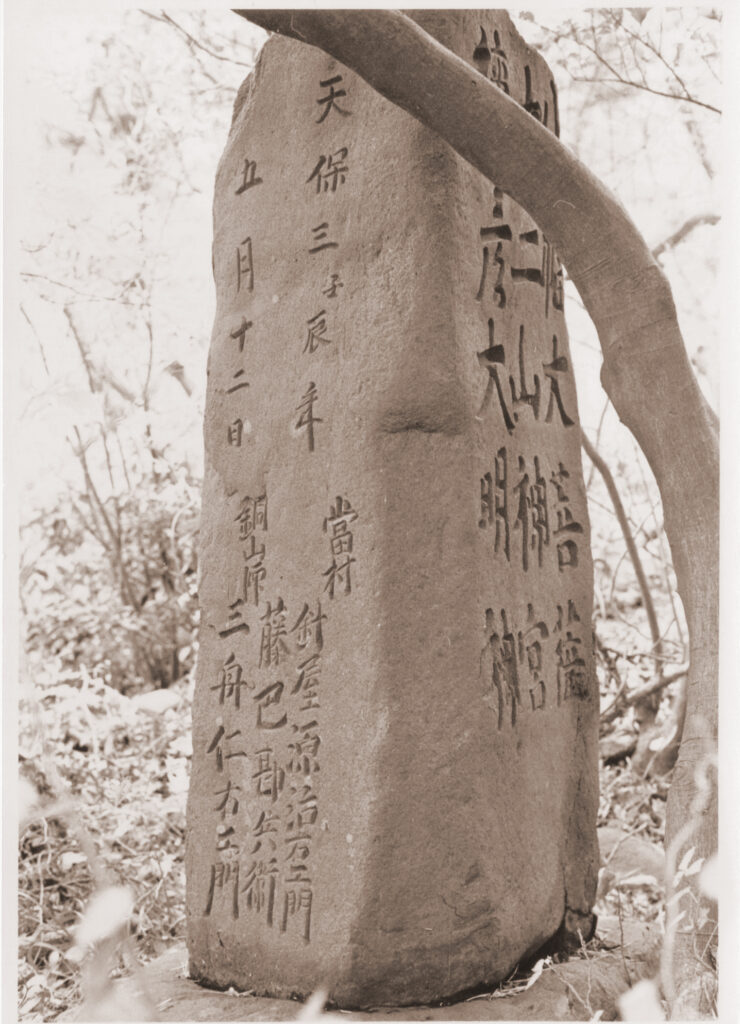 幡大菩薩
二山神宮
彦大明神
天保三壬辰年
五月十二日
當村 針屋源治右エ門
藤巴勘兵衛
銅山師 三舟仁右エ門